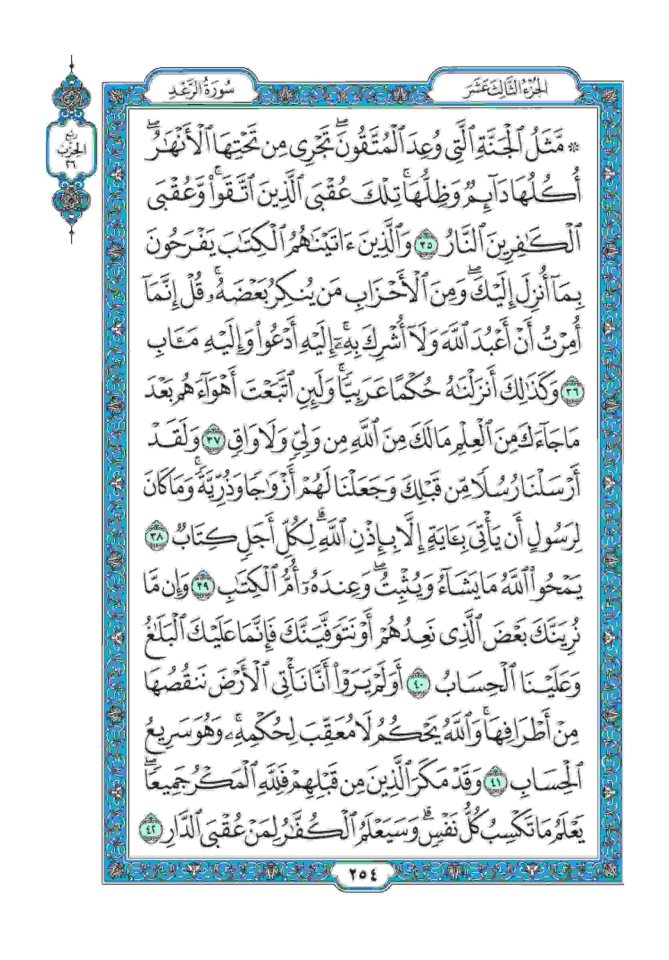 الجزء الثالث عشر
سورة الرعد
ربع
الحزب
٢٦
۞ مَّثَلُ ٱلۡجَنَّةِ ٱلَّتِي وُعِدَ ٱلۡمُتَّقُونَۖ تَجۡرِي مِن تَحۡتِهَا ٱلۡأَنۡهَٰرُۖ
أُكُلُهَا دَآئِمٞ وَظِلُّهَاۚ تِلۡكَ عُقۡبَى ٱلَّذِينَ ٱتَّقَواْۚ وَّعُقۡبَى
ٱلۡكَٰفِرِينَ ٱلنَّارُ ٣٥ وَٱلَّذِينَ ءَاتَيۡنَٰهُمُ ٱلۡكِتَٰبَ يَفۡرَحُونَ
بِمَآ أُنزِلَ إِلَيۡكَۖ وَمِنَ ٱلۡأَحۡزَابِ مَن يُنكِرُ بَعۡضَهُۥۚ قُلۡ إِنَّمَآ
أُمِرۡتُ أَنۡ أَعۡبُدَ ٱللَّهَ وَلَآ أُشۡرِكَ بِهِۦٓۚ إِلَيۡهِ أَدۡعُواْ وَإِلَيۡهِ مَـَٔابِ
٣٦ وَكَذَٰلِكَ أَنزَلۡنَٰهُ حُكۡمًا عَرَبِيّٗاۚ وَلَئِنِ ٱتَّبَعۡتَ أَهۡوَآءَهُم بَعۡدَ
مَا جَآءَكَ مِنَ ٱلۡعِلۡمِ مَا لَكَ مِنَ ٱللَّهِ مِن وَلِيّٖ وَلَا وَاقٖ ٣٧ وَلَقَدۡ
أَرۡسَلۡنَا رُسُلٗا مِّن قَبۡلِكَ وَجَعَلۡنَا لَهُمۡ أَزۡوَٰجٗا وَذُرِّيَّةٗۚ وَمَا كَانَ
لِرَسُولٍ أَن يَأۡتِيَ بِـَٔايَةٍ إِلَّا بِإِذۡنِ ٱللَّهِۗ لِكُلِّ أَجَلٖ كِتَابٞ ٣٨
يَمۡحُواْ ٱللَّهُ مَا يَشَآءُ وَيُثۡبِتُۖ وَعِندَهُۥٓ أُمُّ ٱلۡكِتَٰبِ ٣٩ وَإِن مَّا
نُرِيَنَّكَ بَعۡضَ ٱلَّذِي نَعِدُهُمۡ أَوۡ نَتَوَفَّيَنَّكَ فَإِنَّمَا عَلَيۡكَ ٱلۡبَلَٰغُ
وَعَلَيۡنَا ٱلۡحِسَابُ ٤٠ أَوَلَمۡ يَرَوۡاْ أَنَّا نَأۡتِي ٱلۡأَرۡضَ نَنقُصُهَا
مِنۡ أَطۡرَافِهَاۚ وَٱللَّهُ يَحۡكُمُ لَا مُعَقِّبَ لِحُكۡمِهِۦۚ وَهُوَ سَرِيعُ
ٱلۡحِسَابِ ٤١ وَقَدۡ مَكَرَ ٱلَّذِينَ مِن قَبۡلِهِمۡ فَلِلَّهِ ٱلۡمَكۡرُ جَمِيعٗاۖ
يَعۡلَمُ مَا تَكۡسِبُ كُلُّ نَفۡسٖۗ وَسَيَعۡلَمُ ٱلۡكُفَّٰرُ لِمَنۡ عُقۡبَى ٱلدَّارِ ٤٢
٢٥٤